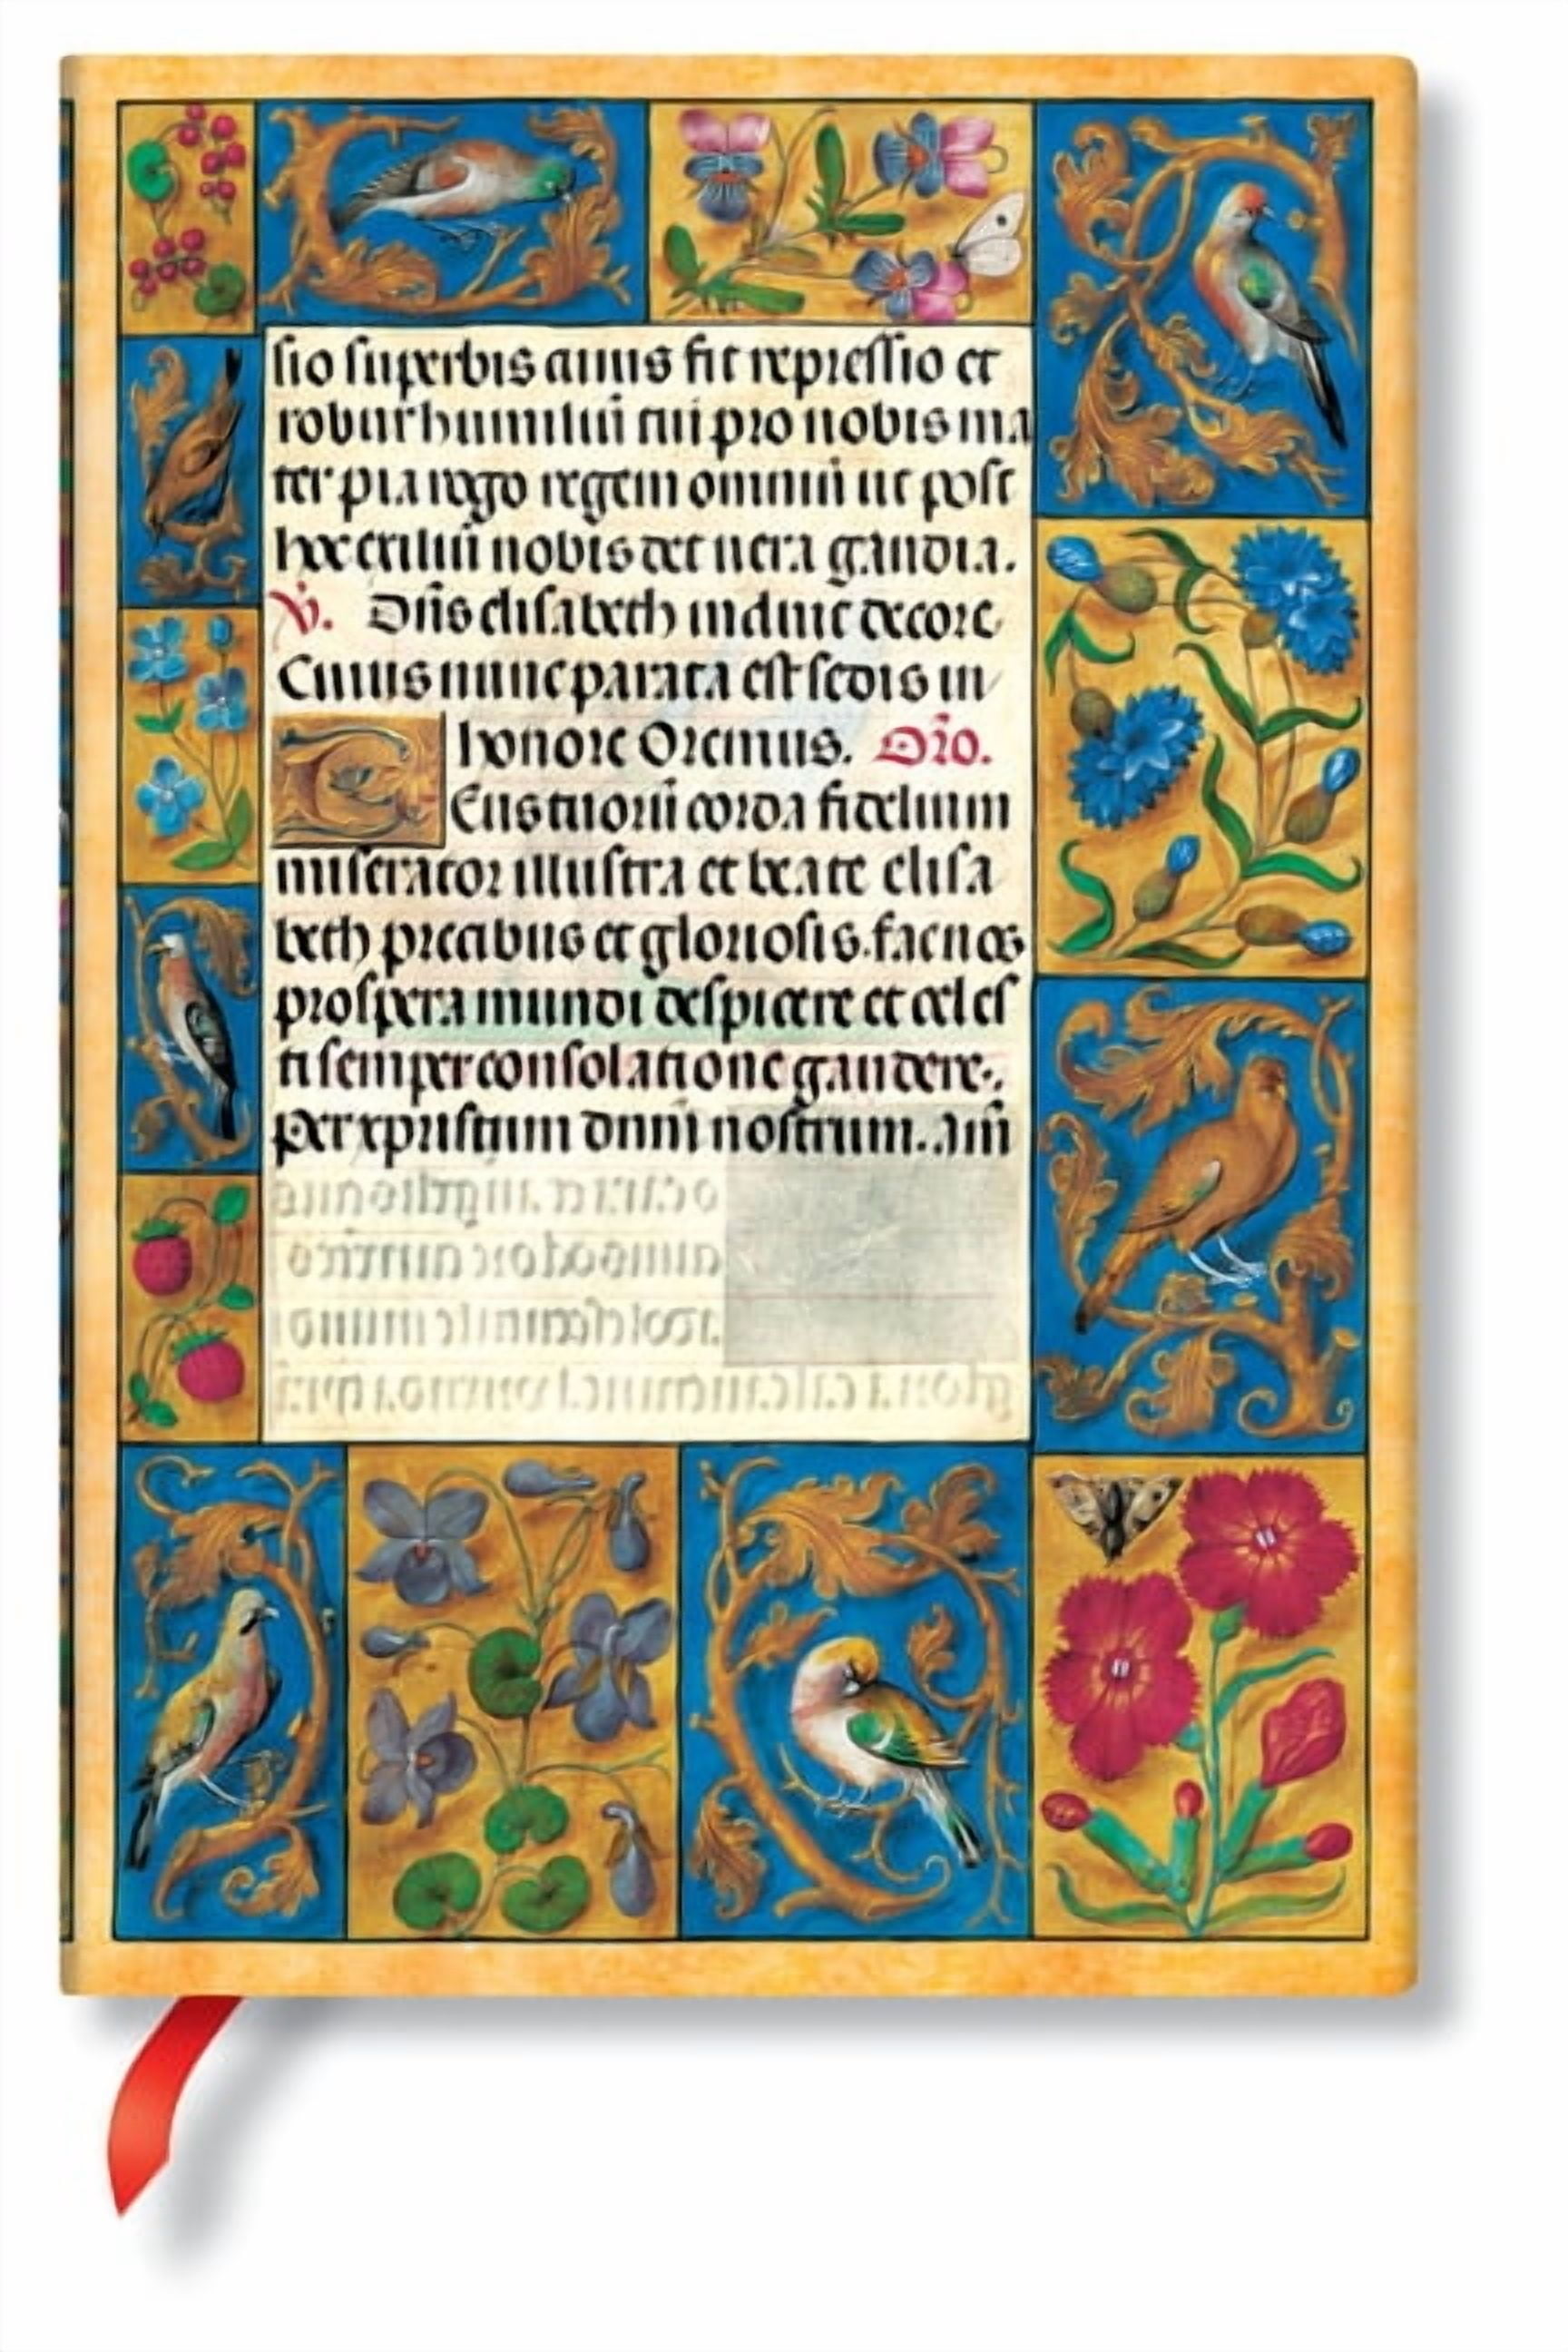 sio superbis cuius fit repressio et
robur humiliũ cui pro nobis ma
ter pia rogo regem omniũ ut post
hoc exiliũ nobis det uera gaudia.
V̇. Dñs elisabeth induit decore
Cuius nunc parata est sedis in
honore Oremus. Or̃o.
Deus tuorũ corda fidelium
miserator illustra et beate elisa
beth precibus et gloriosis. fac nos
prospera mundi despicere et celes
ti semper consolatione gaudere.
Per xpristum dnm̃ nostrum. Am̃